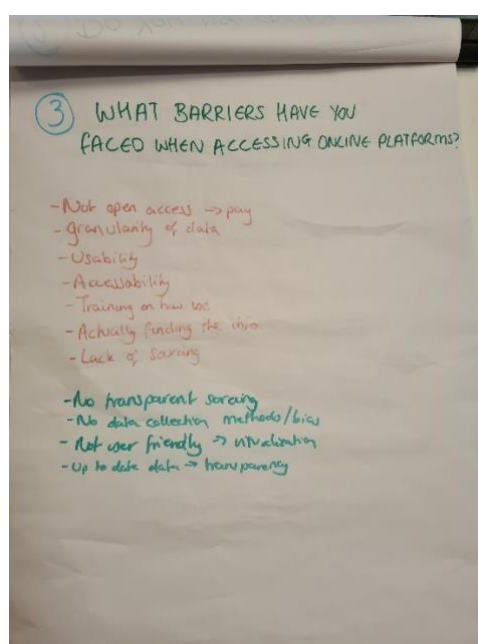 ③ WHAT BARRIERS HAVE YOU
FACED WHEN ACCESSING ONLINE PLATFORMS?
- Not open access → pay
- granularity of data
- Usability
- Accessability
- Training on how use
- Actually finding the info
- Lack of sourcing
- No transparent sorcing
- No data collection methods/bias
- Not user friendly → visualisation
- Up to date data → transparency